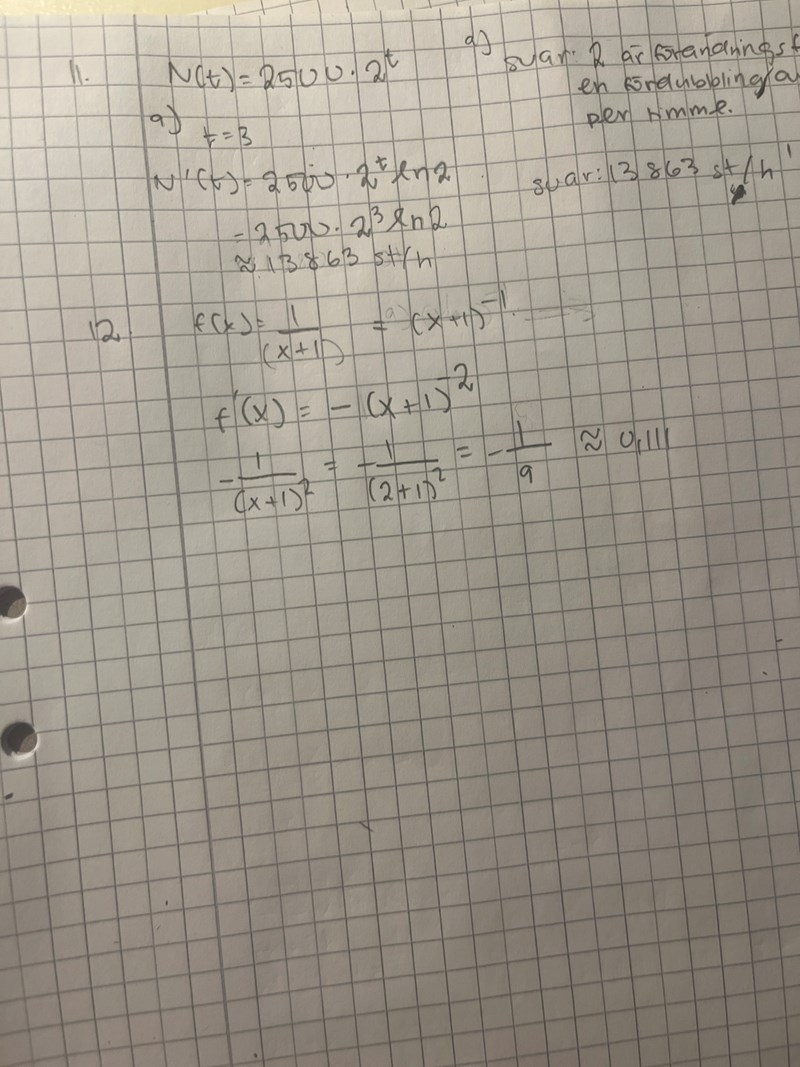 11. N(t) = 2500 · 2^t
a) t = 3
N'(t) = 2500 · 2^t ln2
= 2500 · 2^3 ln2
≈ 13863 st/h
a) svar: 2 är
en fördubbling
per timme.
svar: 13 863 st/h
12. f(x) = 1/(x+1) = (x+1)^-1
f'(x) = -(x+1)^-2
-1/(x+1)^2 = -1/(2+1)^2 = -1/9 ≈ 0,111